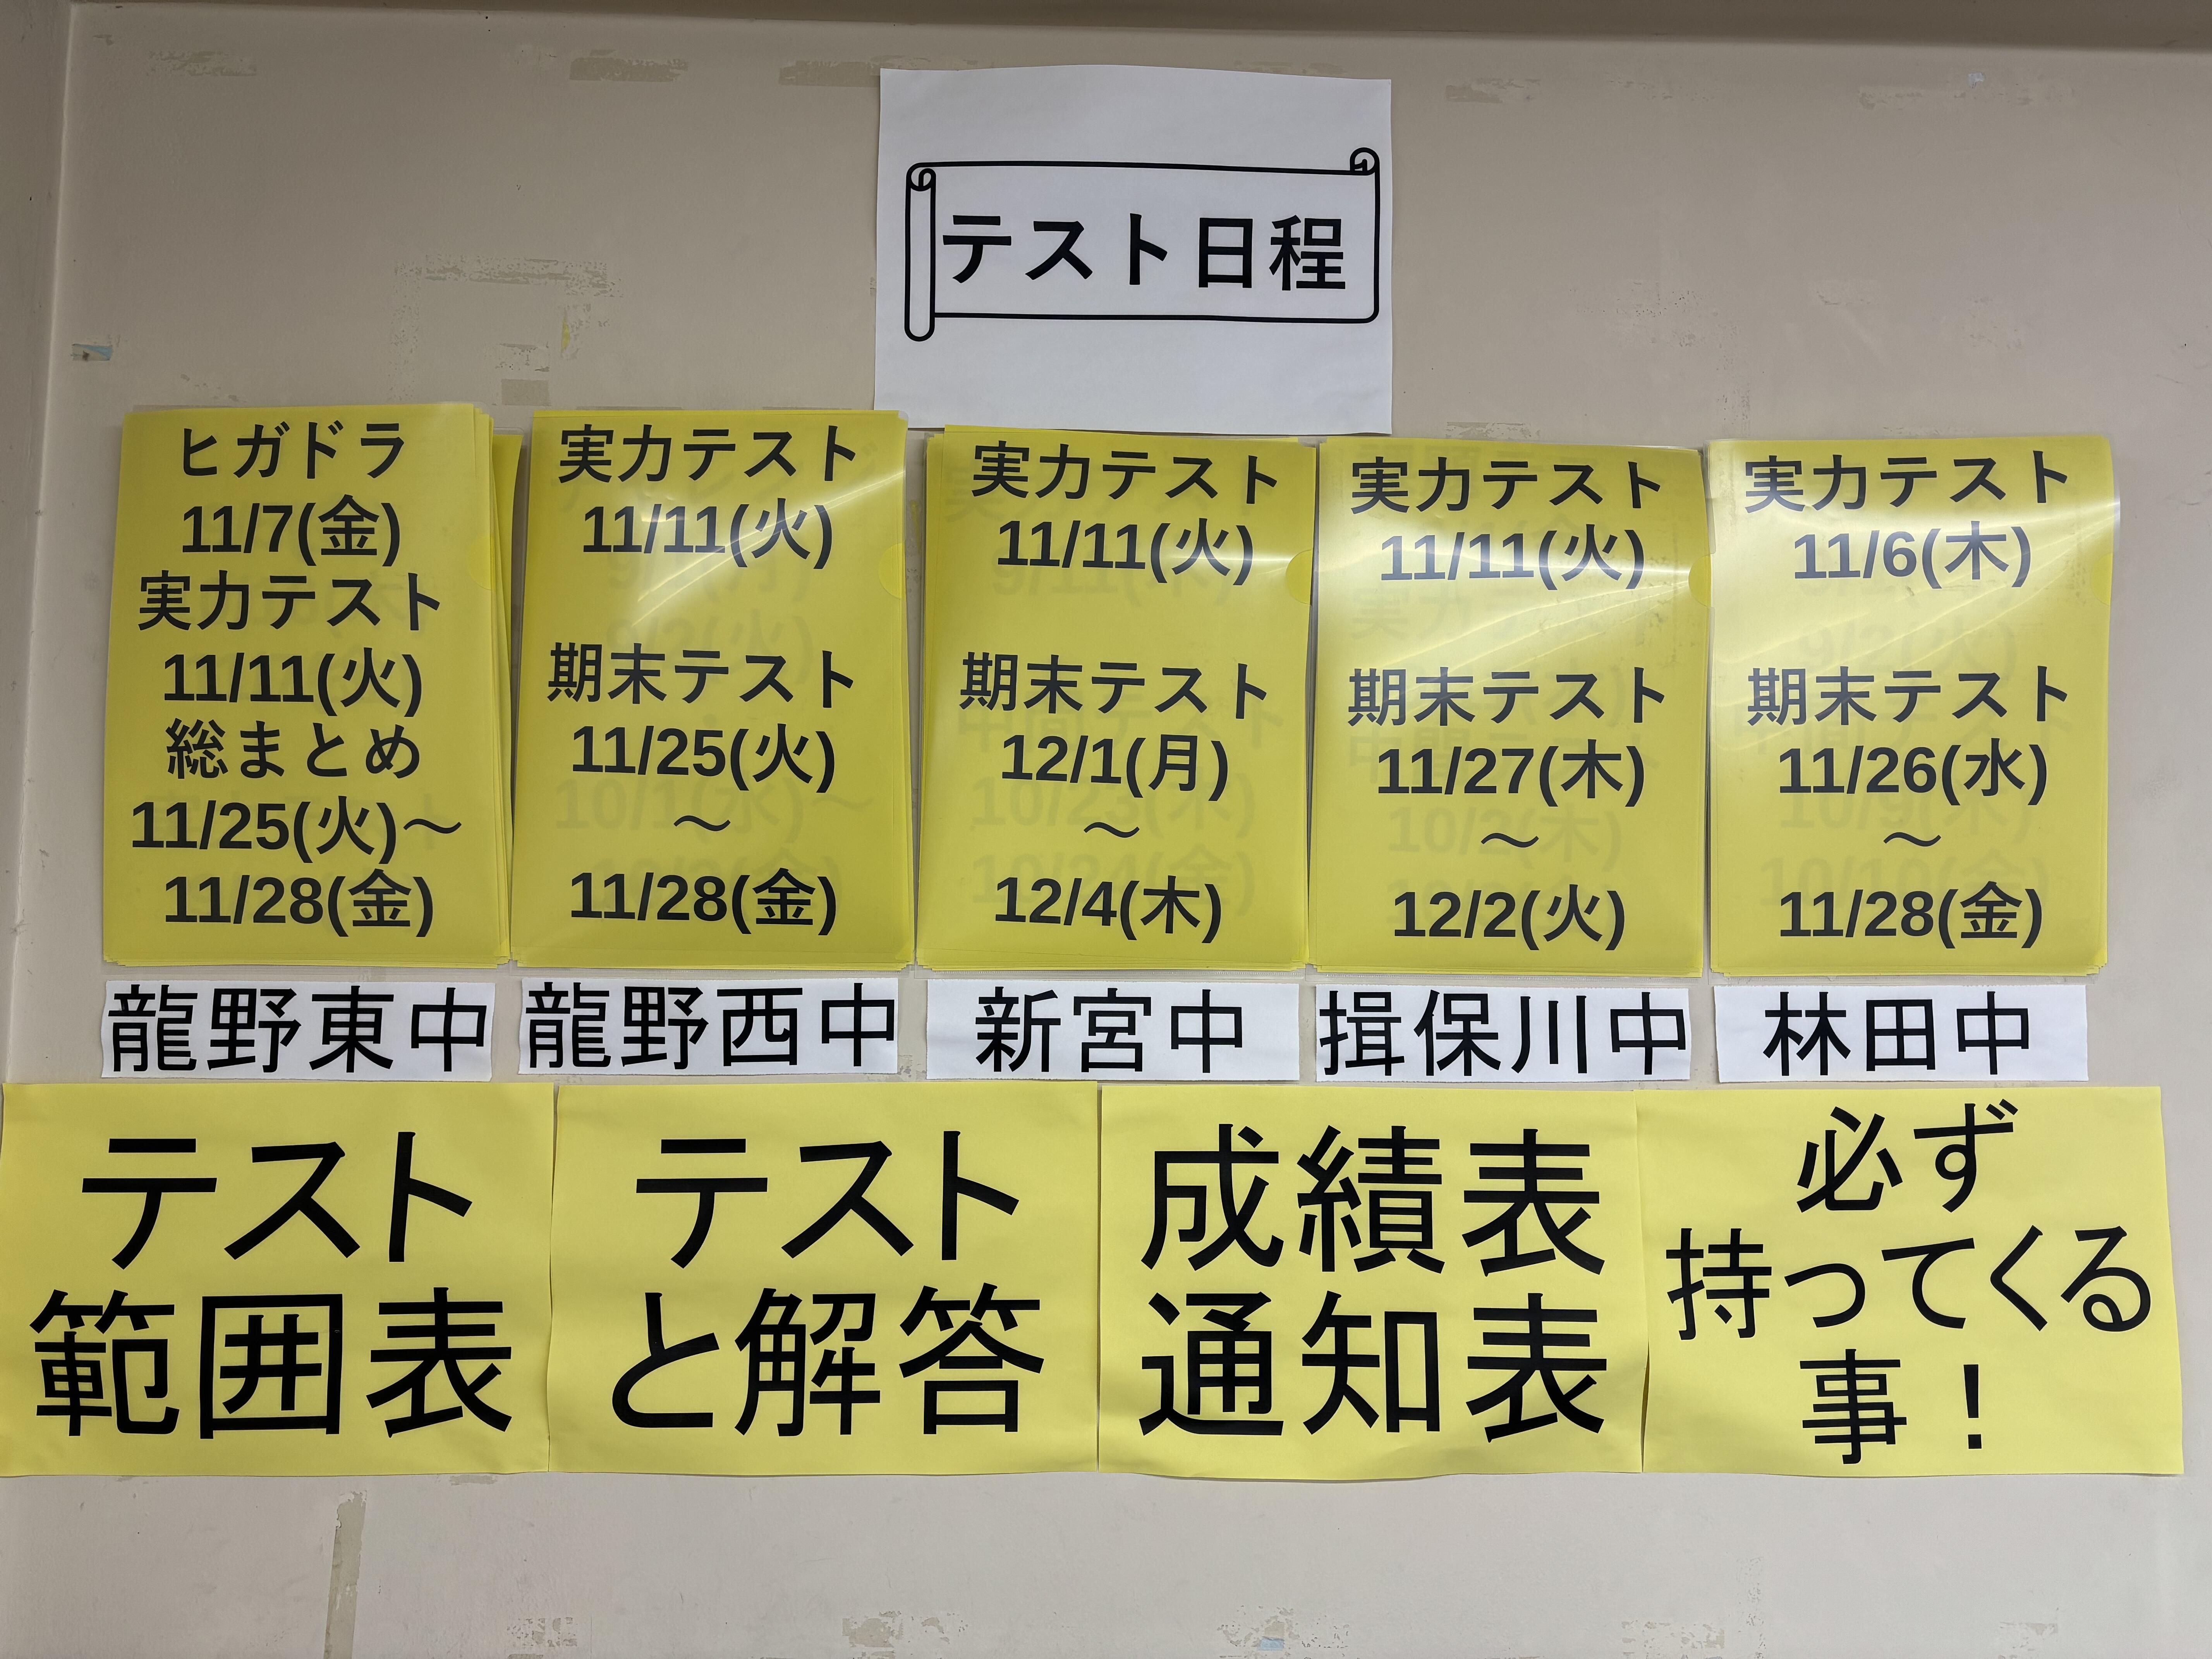 テスト日程
ヒガドラ
11/7(金)
実力テスト
11/11(火)
総まとめ
11/25(火)～
11/28(金)
龍野東中
実力テスト
11/11(火)
期末テスト
11/25(火)
～
11/28(金)
龍野西中
実力テスト
11/11(火)
期末テスト
12/1(月)
～
12/4(木)
新宮中
実力テスト
11/11(火)
期末テスト
11/27(木)
～
12/2(火)
揖保川中
実力テスト
11/6(木)
期末テスト
11/26(水)
～
11/28(金)
林田中
テスト
範囲表
テスト
と解答
成績表
通知表
必ず
持ってくる
事！